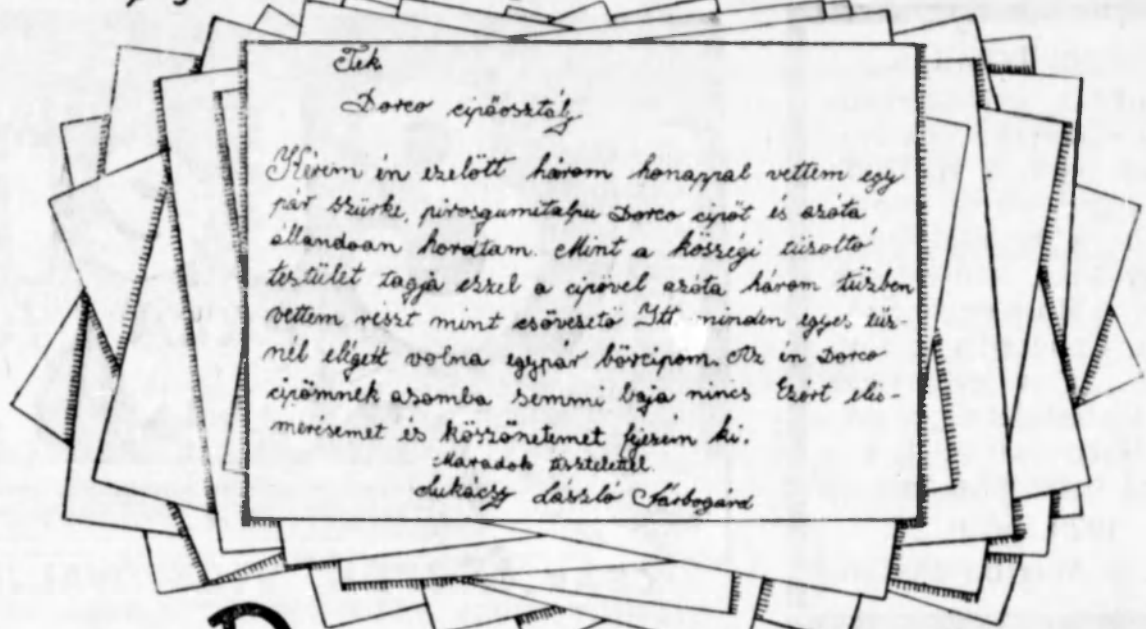 Tek
Dorco cipőosztály
Kérem én ezelött három honappal vettem egy
pár szürke, pirosgumitalpu Dorco cipőt és azóta
állandoan hordtam. Mint a községi tüzoltó
testület tagja ezzel a cipővel azóta három tüzben
vettem részt mint csővezető Itt minden egyes tüz-
nél elégett volna egypár börcipom. Az én Dorco
cipőmnek azomba semmi baja nincs Ezért elis-
merésemet és köszönetemet fejezem ki.
Maradok tisztelettel.
Lukácsy László Sárbogárd
D